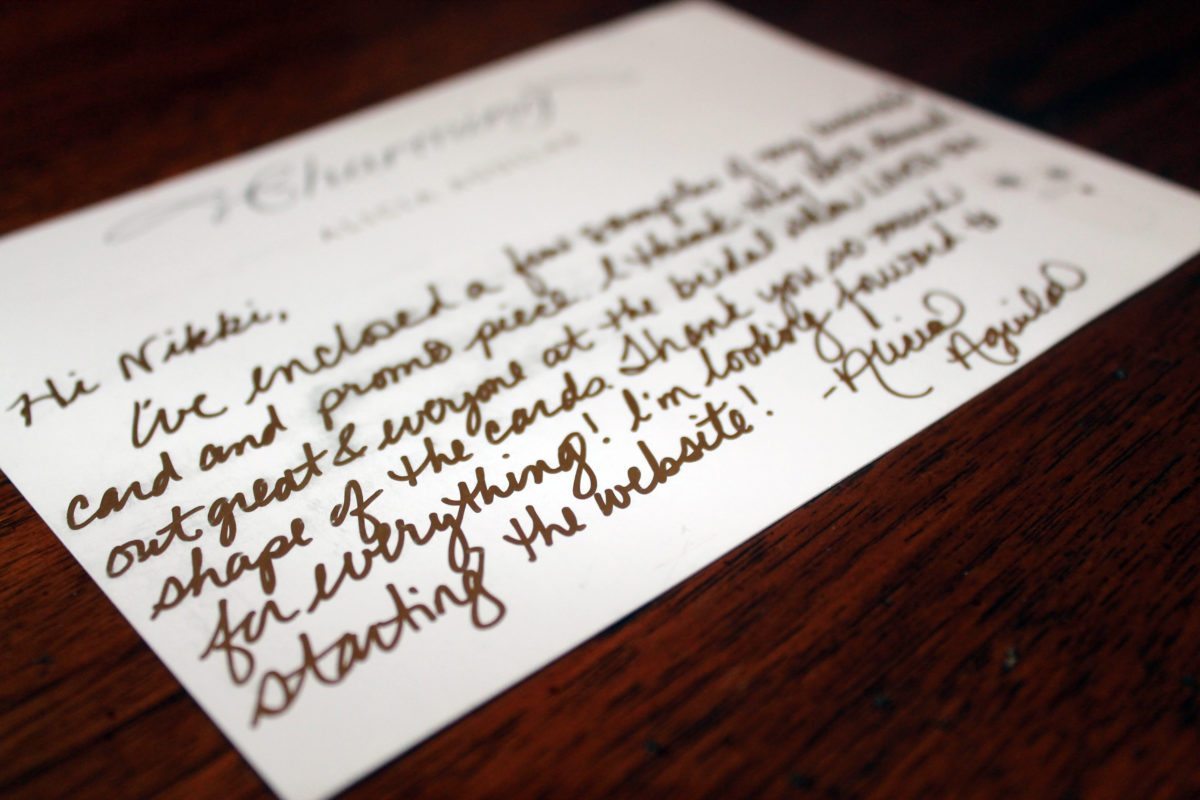 Charming
Hi Nikki,
I've enclosed a few samples of my business
card and promo piece. I think they both turned
out great & everyone at the bridal show loved the
shape of the cards. Thank you so much
for everything! I'm looking forward to
starting the website!
-Alicia
Aguilar